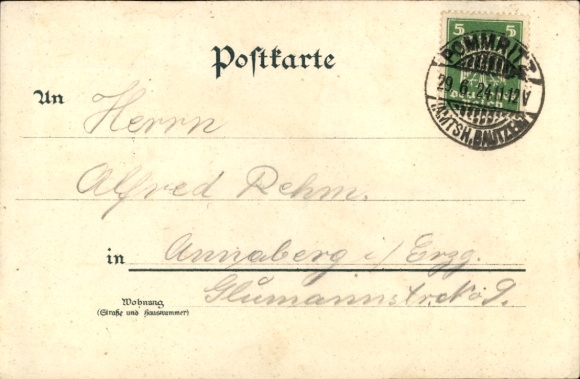 5 5
Postkarte
POMMRITZ
29.6.24.11-12V
(AMTSH. BAUTZEN)
An Herrn
Alfred Rehm.
in Annaberg i/ Erzg.
Wohnung
(Straße und Hausnummer)
No 9.